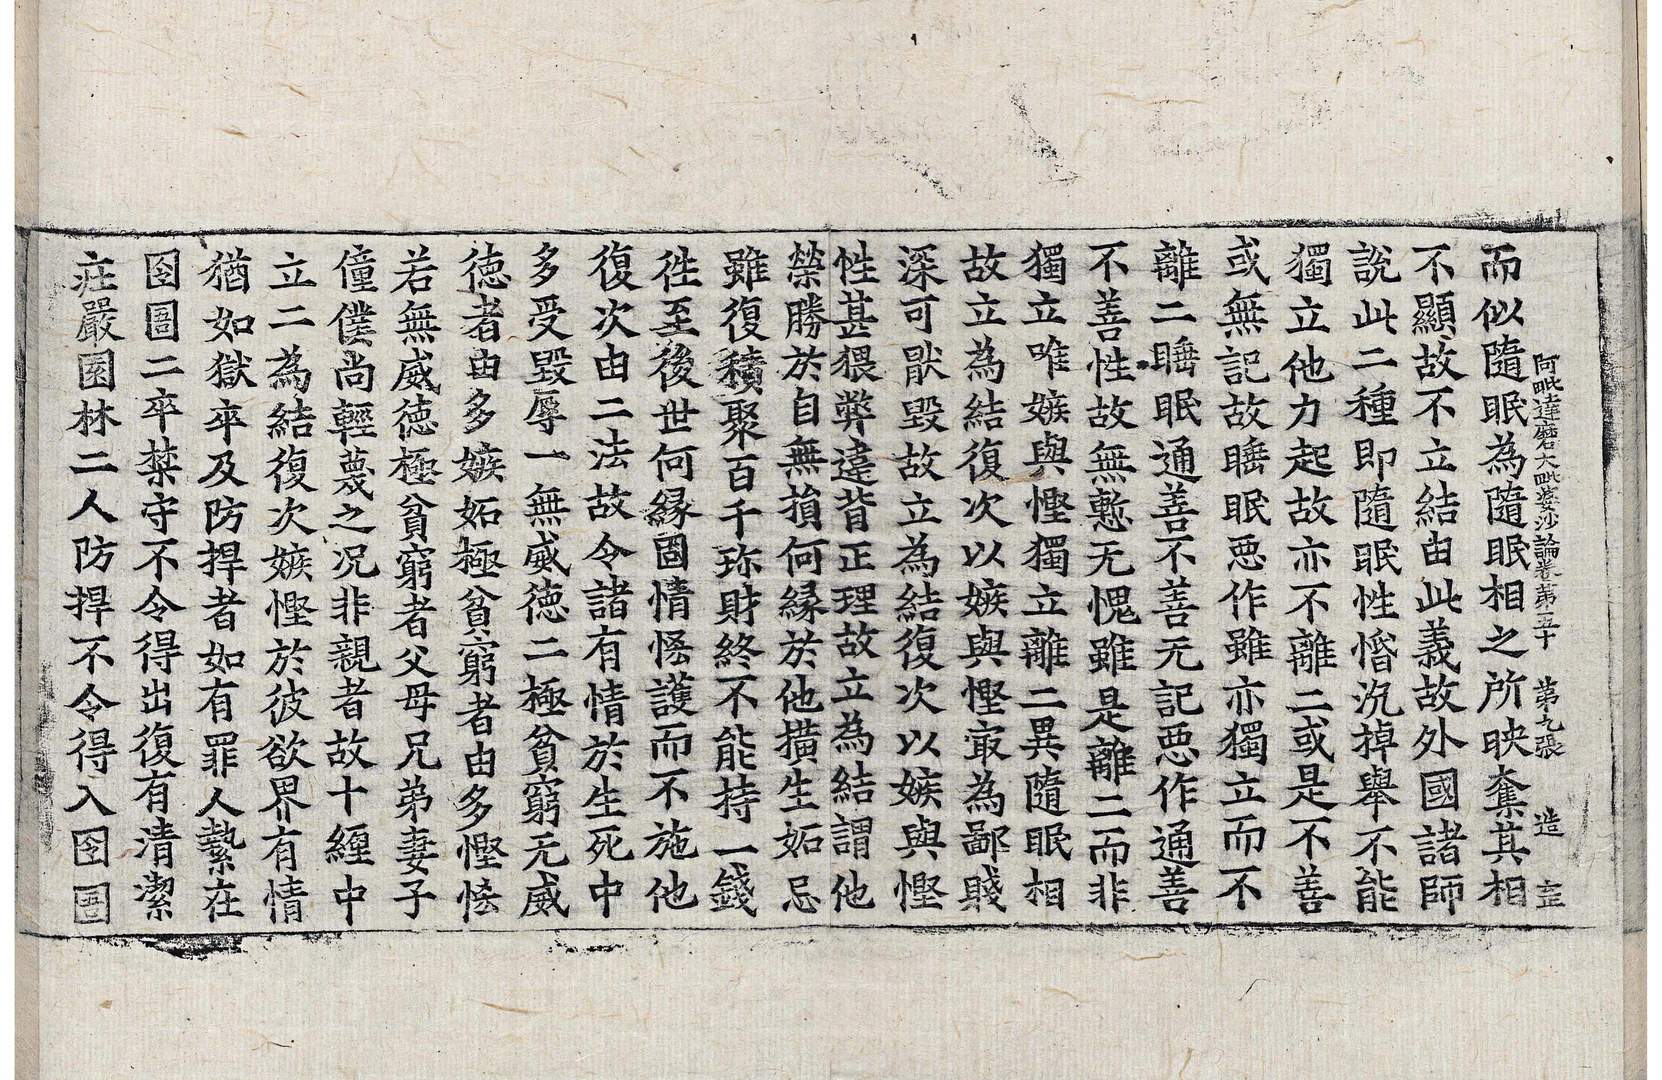 阿毗達磨大毗婆沙論卷第五十 第九張 造
而似隨眠為隨眠相之所映奪其相
不顯故不立結由此義故外國諸師
說此二種即隨眠性惛沉掉舉不能
獨立他力起故亦不離二或是不善
或無記故睡眠惡作雖亦獨立而不
離二睡眠通善不善无記惡作通善
不善性故無慙无愧雖是離二而非
獨立唯嫉與慳獨立離二異隨眠相
故立為結復次以嫉與慳寂為鄙賤
深可猒毀故立為結復次以嫉與慳
性甚猥弊違背正理故立為結謂他
榮勝於自無損何緣於他撗生妬忌
雖復積聚百千珎財終不能持一錢
徃至後世何緣固惜悋護而不施他
復次由二法故令諸有情於生死中
多受毀辱一無威德二極貧窮无威
德者由多嫉妬極貧窮者由多慳悋
若無威德極貧窮者父母兄弟妻子
僮僕尚輕蔑之況非親者故十纏中
立二為結復次嫉慳於彼欲界有情
猶如獄卒及防捍者如有罪人縶在
囹圄二卒禁守不令得出復有清潔
莊嚴園林二人防捍不令得入囹圄